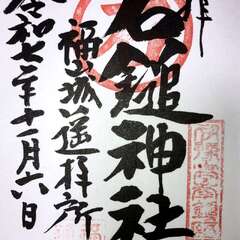 奉拝
石鎚神社
福山城遥拝所
令和七年十一月六日